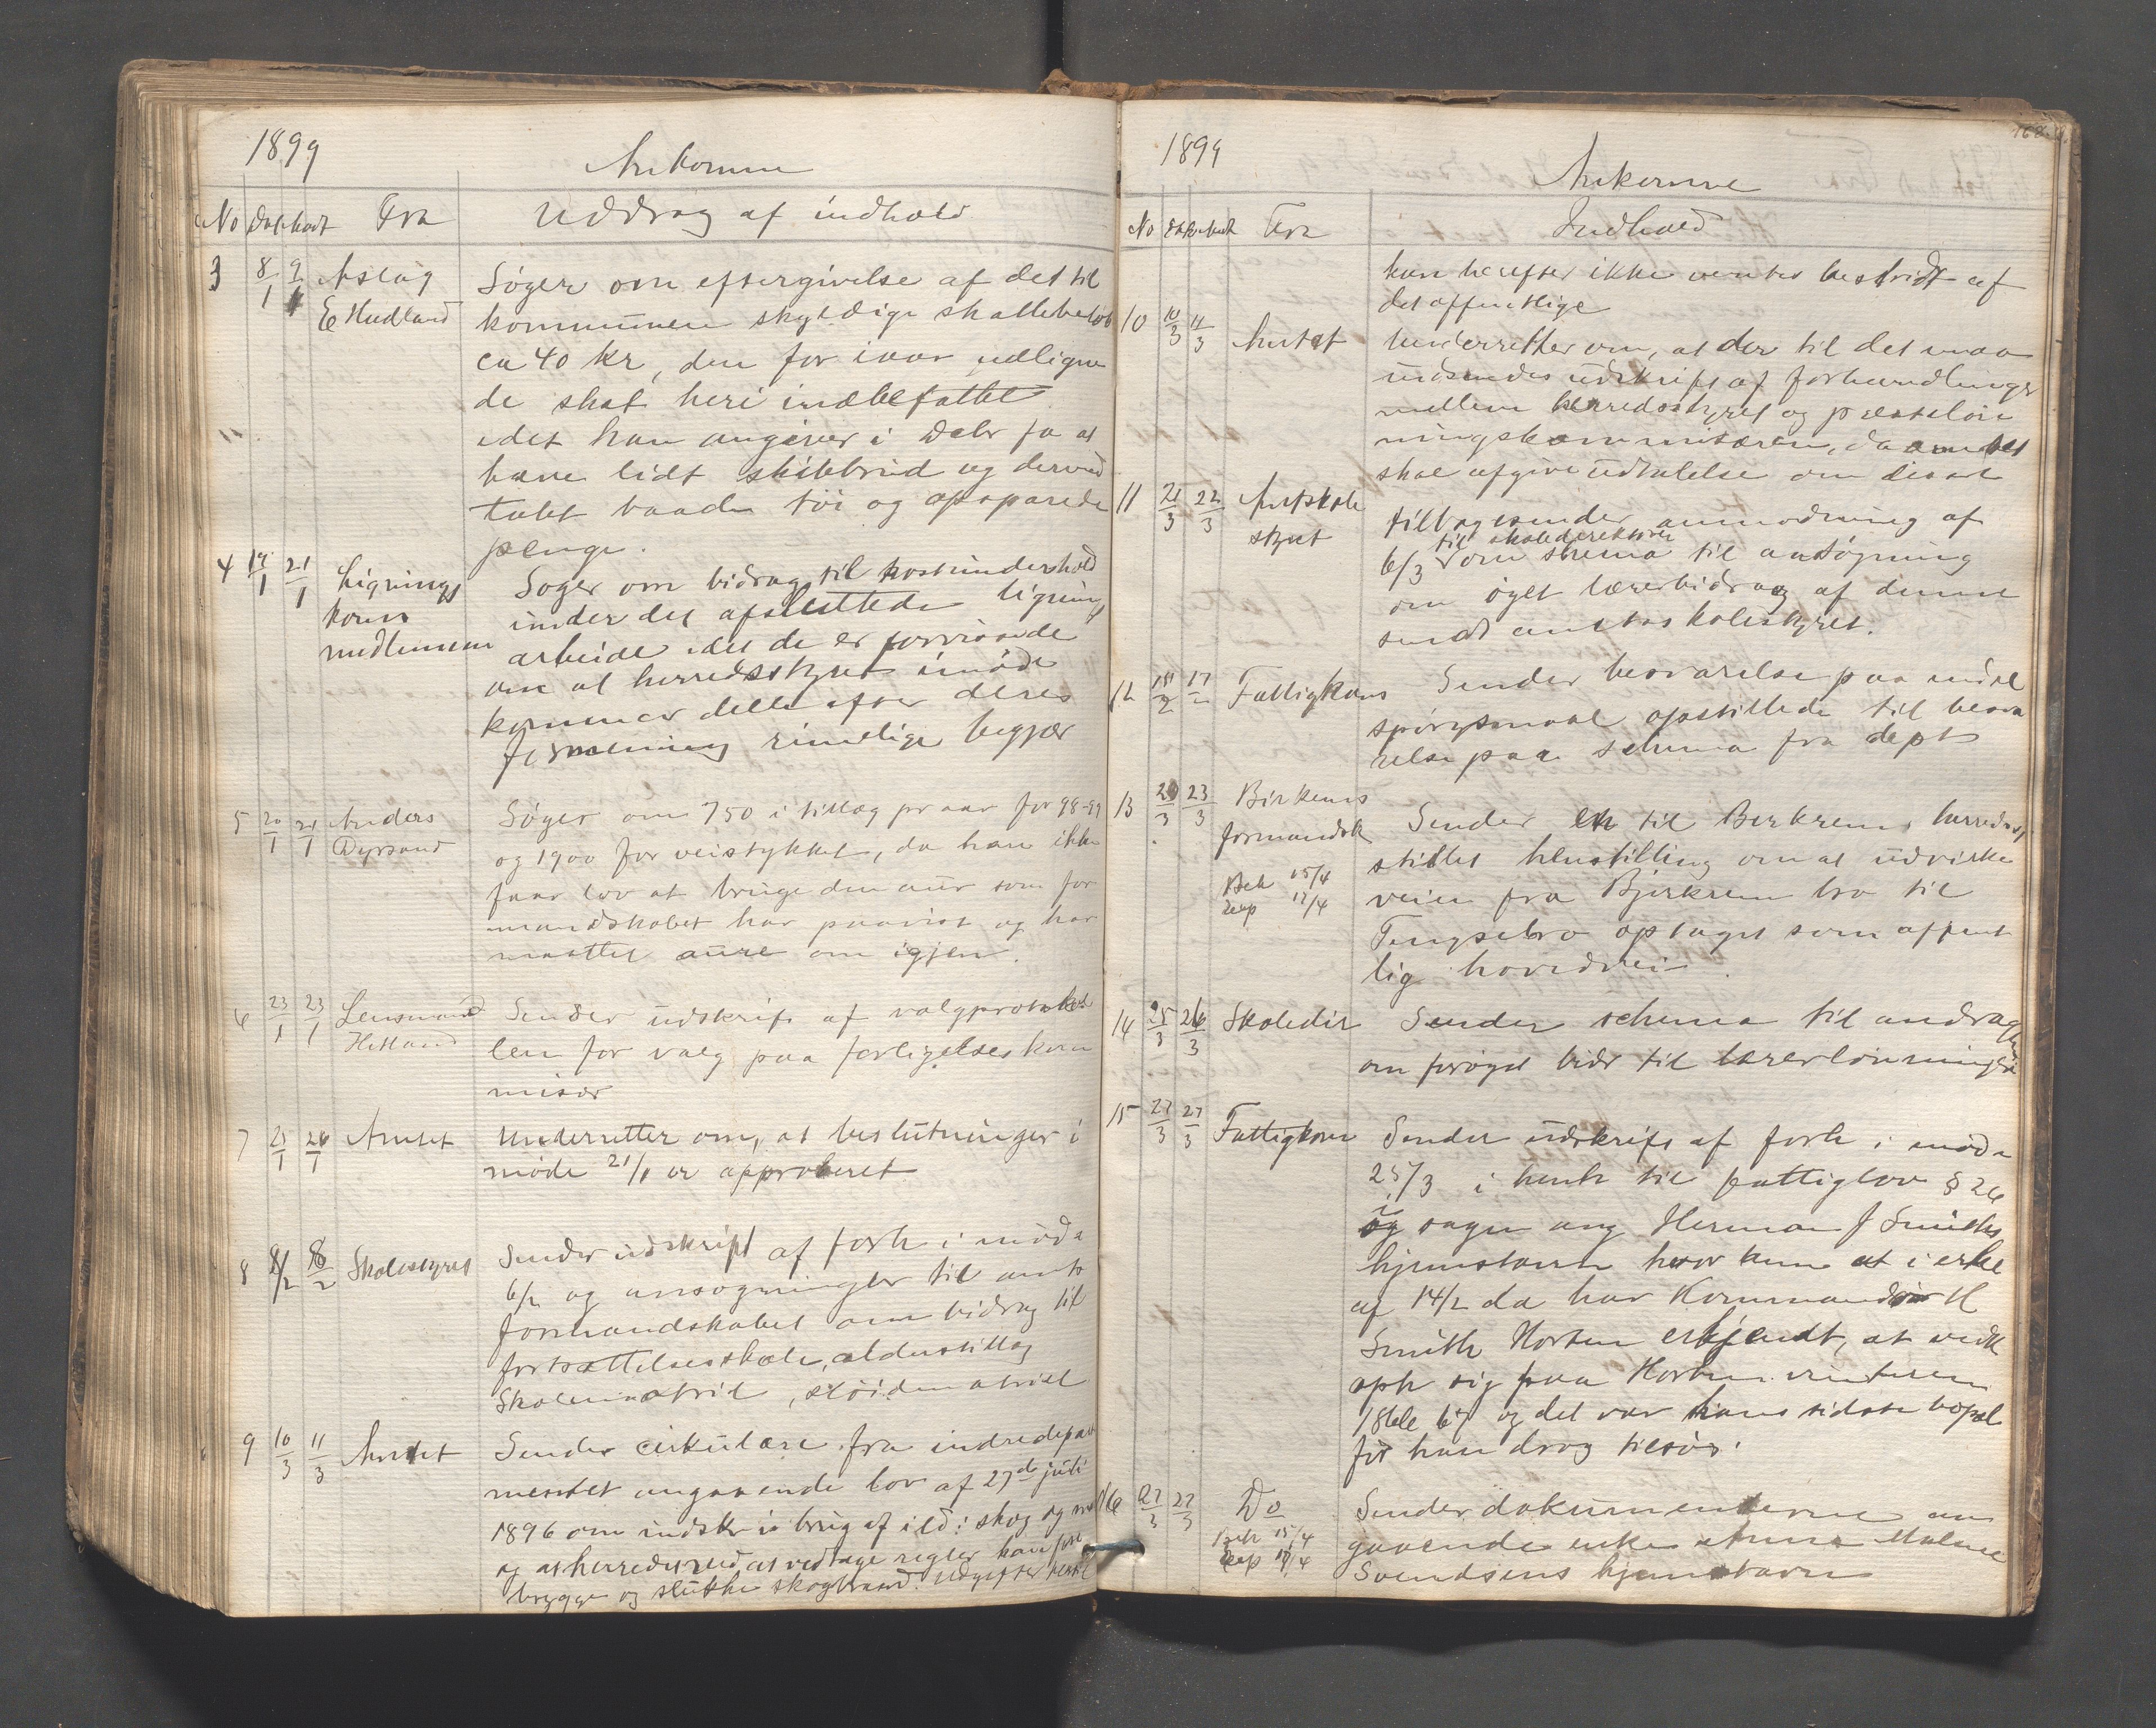 1899
Ankomne
No Dat Modt Fra Uddrag af indhold
3 8/1 9/1 Aslag E Hudland
Søger om eftergivelse af det til
kommunen skyldige skattebeløb
ca 40 kr, den for ivaar udligne
de skat heri indbefattet
idet han angiver i Debr fa at
have lidt skibbrud og derved
tabt baade tøi og opsparede
penge.
4 19/1 21/1 Lignings kom medlemmer
Søger om bidrag til kostunderhold
under det afsluttede lignings
arbeide idet de er forvissede
om at herredsstyret imøde
kommer dette efter deres
formening rimelige begjær
5 20/1 21/1 Anders Dyrsand
Søger om 750 i tillæg pr aar for 98-99
og 1900 for veistykket, da han ikke
faar lov at bruge den aur som for
mandskabet har paavist og har
maattet aure om igjen.
6 23/1 23/1 Lensmand Hetland
Sender udskrift af valgprotokol
len for valg paa forligelseskom
misær
7 25/1 26/1 Amtet
Underretter om, at beslutninger i
møde 21/1 er approberet
8 8/2 8/2 Skolestyret
Sender udskrift af forh i møde
6/2 og ansøgninger til amts
formandskabet om bidrag til
fortsættelsesskole, alderstillæg
Skolemateriel, sløidmateriel
9 10/3 11/3 Amtet
Sender cirkulære fra indredepart
mentet angaaende lov af 27de juli
1896 om indskr i brug af ild i skog og mark
og at herredet ved at vedtage regler kan fore
bygge og slukke skogbrand. Udgifter
1899
Ankomne
168.
No Dat Modt Fra Indhold
kan herefter ikke ventes bestridt af
det offentlige
10 10/3 11/3 Amtet
Underretter om, at der til det maa
indsendes udskrift af forhandlinger
mellem herredsstyret og præsteløn
ningskommisæren, da amtet
skal afgive udtalelse om disse
11 21/3 22/3 Amtskole styret
tilbagesender anmodning af
6/3 til skoledirektøren om skema til ansøgning
om øget lærerbidrag af denne
sendt amtsskolestyret.
12 17/2 Fattigkoms
Sender besvarelse paa endel
spørgsmaal opstillede til besva
relse paa schema fra dept
13 20/3 23/3 Birkrems formandsk
Beh 15/4
Exp 17/4
Sender en til Birkrems herredss
stillet henstilling om at udvirke
veien fra Bjerkrem bro til
Tengsebro optaget som offent
lig hovedvei.
14 25/3 26/3 Skoledir
Sender schema til andragende
om forøget bidr til lærerlønningen
15 27/3 27/3 Fattigkom
Sender udskrift af forh i møde
25/3 i henh til fattiglov § 26
i sagen ang Herman J Smiths
hjemstavn hvor kun at i erkl
af 14/2 da har Kommandør H
Smith Horten erkjendt, at vedk
oph sig paa Horten vinteren
1866 67 og det var hans sidste bopæl
før han drog tilsøs.
16 27/3 27/3 Do
Beh 15/4
Exp 17/4
Sender dokumenterne an
gaaende enke Anna Malene
Svendsens hjemstavn